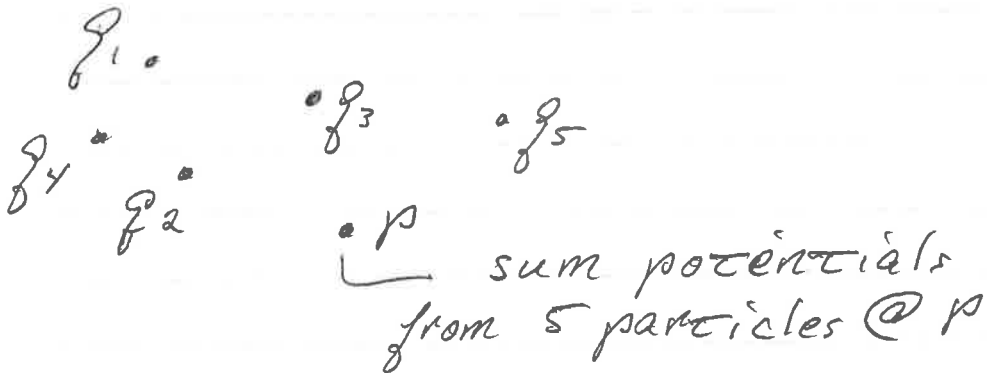 q1
q3
q5
q4
q2
p
sum potentials
from 5 particles @ p